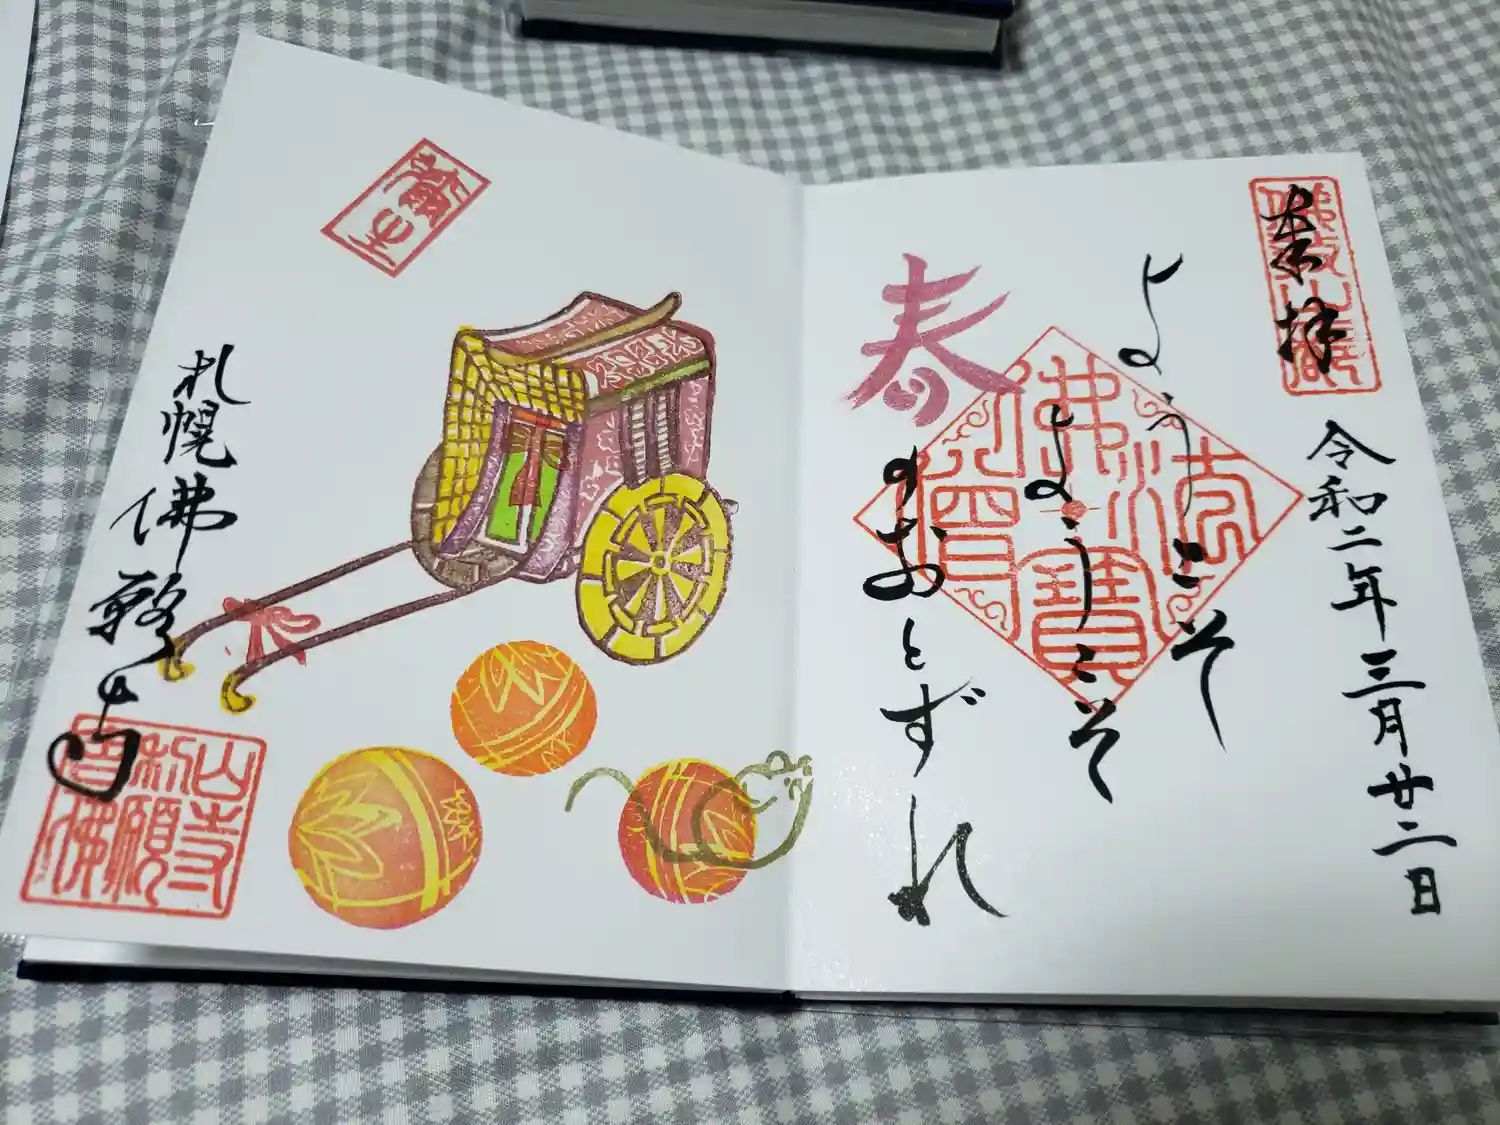 奉拝
令和二年三月廿二日
ようこそ
ようこそ
佛法僧寶
春のおとずれ
札幌佛願寺